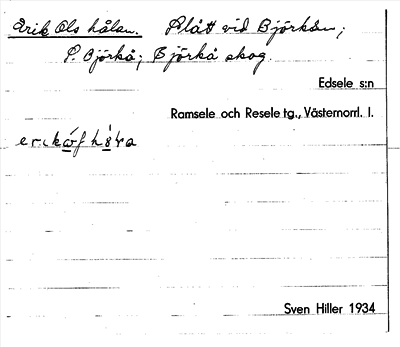 Erik Ols hålan. Slått vid Björkån;
S. Björkå; Björkå skog.
Edsele s:n
Ramsele och Resele tg., Västernorrl. l.
Sven Hiller 1934